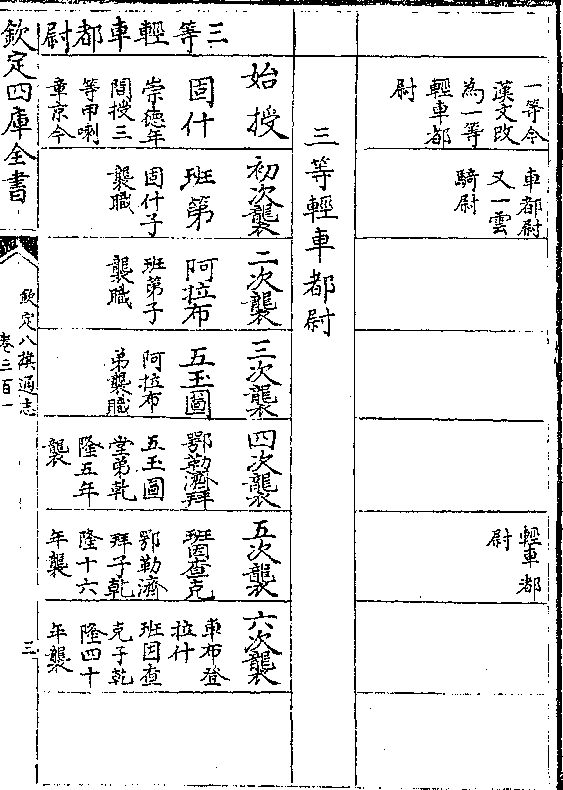 一等今
漢文改
為一等
輕車都
尉
車都尉
又一雲
騎尉
輕車都
尉
三等輕車都尉
始授
固什
崇德年
間授三
等甲喇
章京今
三等輕車都尉
初次襲
班第
固什子
襲職
二次襲
阿拉布
班第子
襲職
三次襲
五玉圖
阿拉布
弟襲職
四次襲
鄂勒濟拜
五玉圖
堂弟乾
隆五年
襲
五次襲
班因查克
鄂勒濟
拜子乾
隆十六
年襲
六次襲
車布登
拉什
班因查
克子乾
隆四十
年襲
欽定四庫全書
欽定八旗通志
卷三百一
三